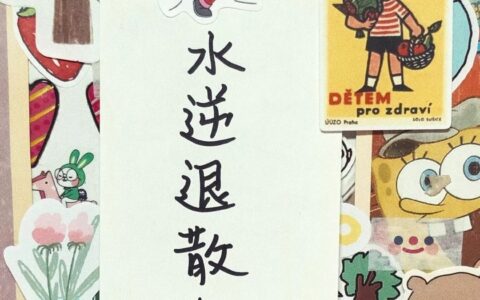 水逆退散
DĚTEM
pro zdraví
ÚÚZO Praha
SOLO SUŠICE